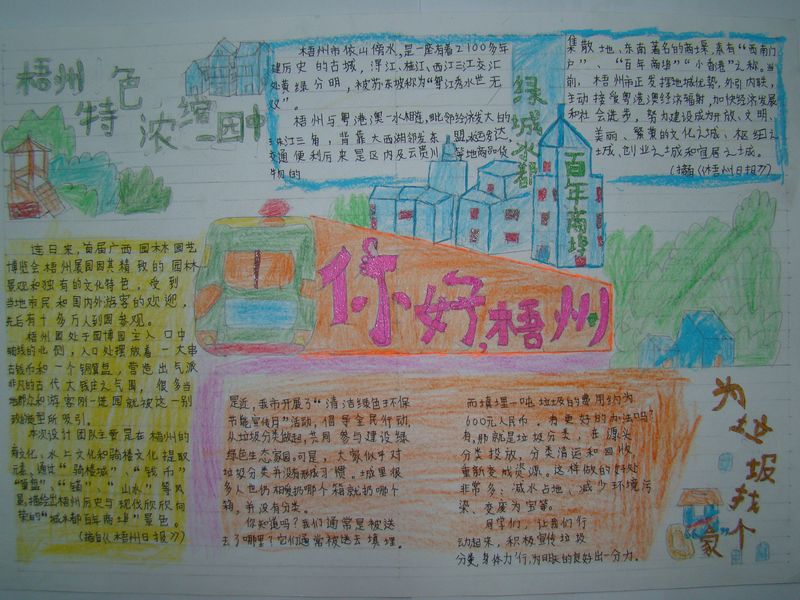 梧州
特色
浓缩
园中
梧州市依山傍水,是一座有着2100多年
建历史的古城,浔江、桂江、西江三江交汇
处黄绿分明,被苏东坡称为“鸳江秀水世无
双”。
梧州与粤港澳一水相连,毗邻经济发大的
珠江三角,背靠大西
交通便利历来是区内及云贵川等地商品货
物的
集散地、东南著名的商埠,素有“西南门
户”、“百年商埠”“小香港”之称。当
前,梧州市正发挥地城优势,外引内联,
主动接受粤港澳经济辐射,加快经济发展
和社会进步,努力建设成为开放、文明、
美丽、繁荣的文化之城、枢纽之
城、创业之城和宜居之城。
(摘自《梧州日报》)
绿城水都
百年商埠
你好,梧州
连日来,首届广西园林园艺
博览会梧州展园因其精致的园林
景观和独有的文化特色,受到
当地市民和国内外游客的欢迎,
先后有十多万人到园参观。
梧州园处于园博园主入口中
轴线的北侧,入口处摆放着一大串
古钱币和一个铜算盘,营造出气派
非凡的古代大钱庄之气围,很多当
地群众和游客刚一进园就被这一别
致的造型所吸引。
本次设计团队主要是在梧州的
商文化,水上文化和骑楼文化提取
元素,通过“骑楼城”、“钱币”
“算盘”、“锚”、“山水”等风
景,描绘出梧州历史与现代欣欣向
荣的“绿城水都百年商埠”景色。
(摘自《梧州日报》)
是近,我市开展了“清洁绿色环保
节能宣传月”活动,倡导全民行动,
从垃圾分类做起,共同参与建设绿
绿色生态家园。可是,大家似乎对
垃圾分类并没有形成习惯。城里很
多人也仍相要扔哪个箱就扔哪个
箱,并没有分类。
你知道吗?我们通常是被送
去了哪里?它们通常被送去填埋。
而填埋一吨垃圾的费用约为
600元人民币。有更好的办法吗?
有,那就是垃圾分类,在源头
分类投放,分类清运和回收,
重新变成资源。这样做的好处
非常多:减水占地、减少环境污
染、变废为宝等。
同学们,让我们行
动起来,积极宣传垃圾
分类,身体力行,为明天的良好出一分力。
为垃圾找个
“家”